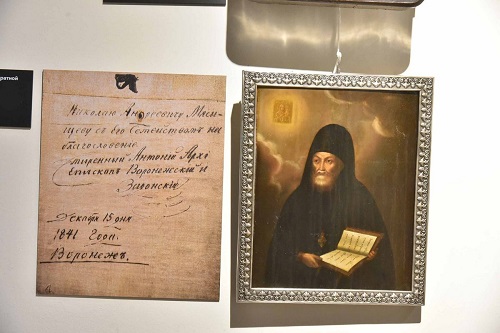 ратной
Николаю Андреевичу
съ его Семействомъ въ
благословение
смиренный Антоний Архі
Епископъ Воронежский и
Задонскій
15 дня
1841 Года.
Воронежъ.